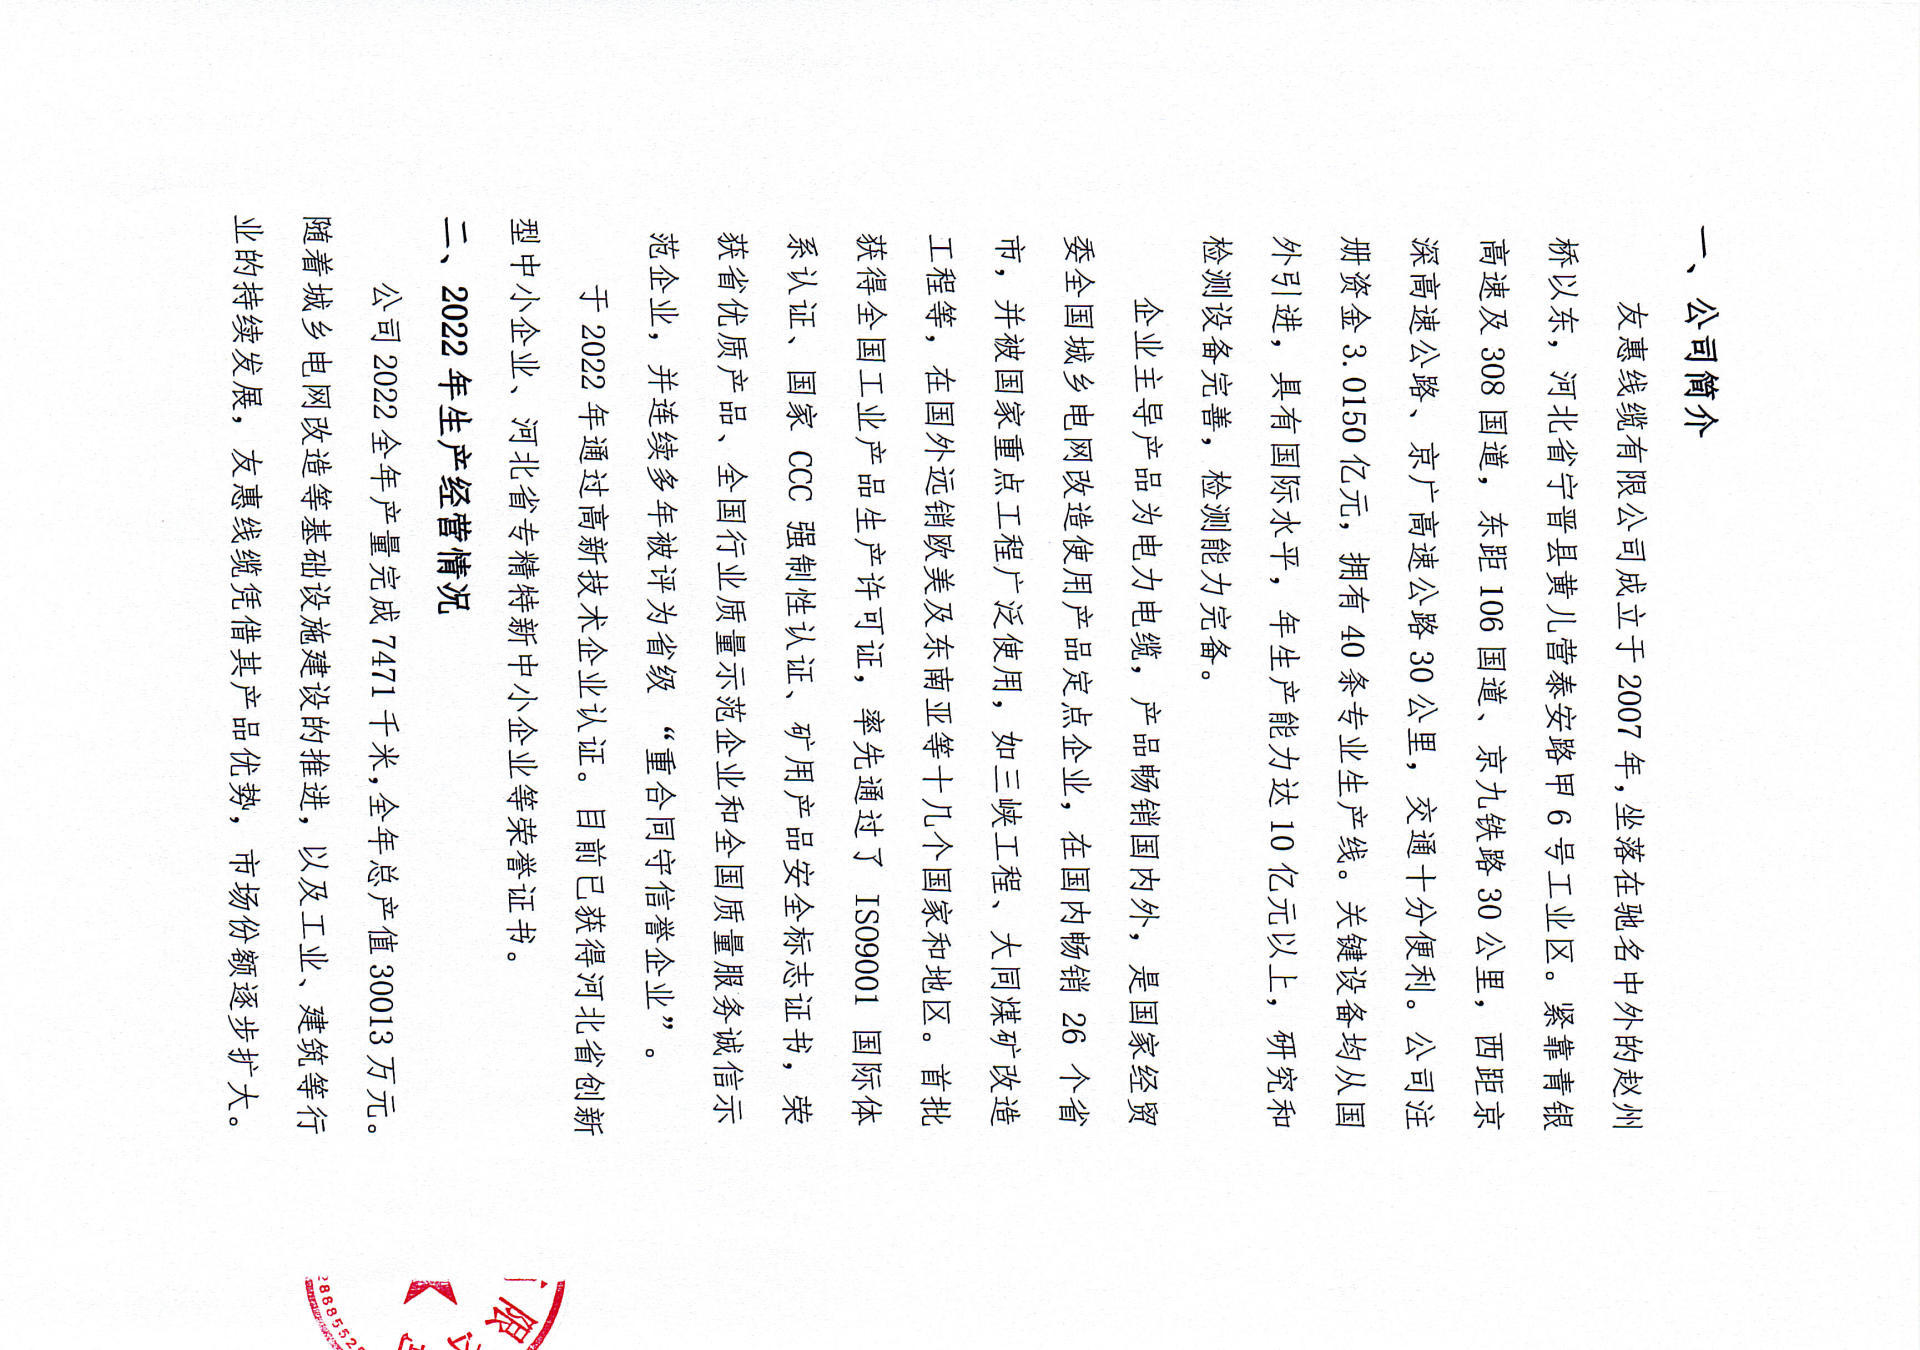 一、公司简介
友惠线缆有限公司成立于2007年,坐落在驰名中外的赵州
桥以东，河北省宁晋县黄儿营泰安路甲6号工业区。紧靠青银
高速及308国道，东距106国道、京九铁路30公里，西距京
深高速公路、京广高速公路30公里，交通十分便利。公司注
册资金3.0150亿元，拥有40条专业生产线。关键设备均从国
外引进，具有国际水平，年生产能力达10亿元以上，研究和
检测设备完善，检测能力完备。
企业主导产品为电力电缆，产品畅销国内外，是国家经贸
委全国城乡电网改造使用产品定点企业，在国内畅销 26 个省
市，并被国家重点工程广泛使用，如三峡工程、大同煤矿改造
工程等，在国外远销欧美及东南亚等十几个国家和地区。首批
获得全国工业产品生产许可证，率先通过了 ISO9001 国际体
系认证、国家 CCC 强制性认证、矿用产品安全标志证书，荣
获省优质产品、全国行业质量示范企业和全国质量服务诚信示
范企业，并连续多年被评为省级 “重合同守信誉企业”。
于2022年通过高新技术企业认证。目前已获得河北省创新
型中小企业、河北省专精特新中小企业等荣誉证书。
二、2022年生产经营情况
公司2022全年产量完成7471千米,全年总产值30013万元。
随着城乡电网改造等基础设施建设的推进，以及工业、建筑等行
业的持续发展，友惠线缆凭借其产品优势，市场份额逐步扩大。
限